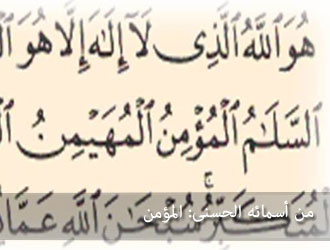 هُوَ ٱللَّهُ ٱلَّذِى لَآ إِلَٰهَ إِلَّا هُوَ
ٱلسَّلَٰمُ ٱلْمُؤْمِنُ ٱلْمُهَيْمِنُ
سُبْحَٰنَ ٱللَّهِ
من أسمائه الحسنى: المؤمن